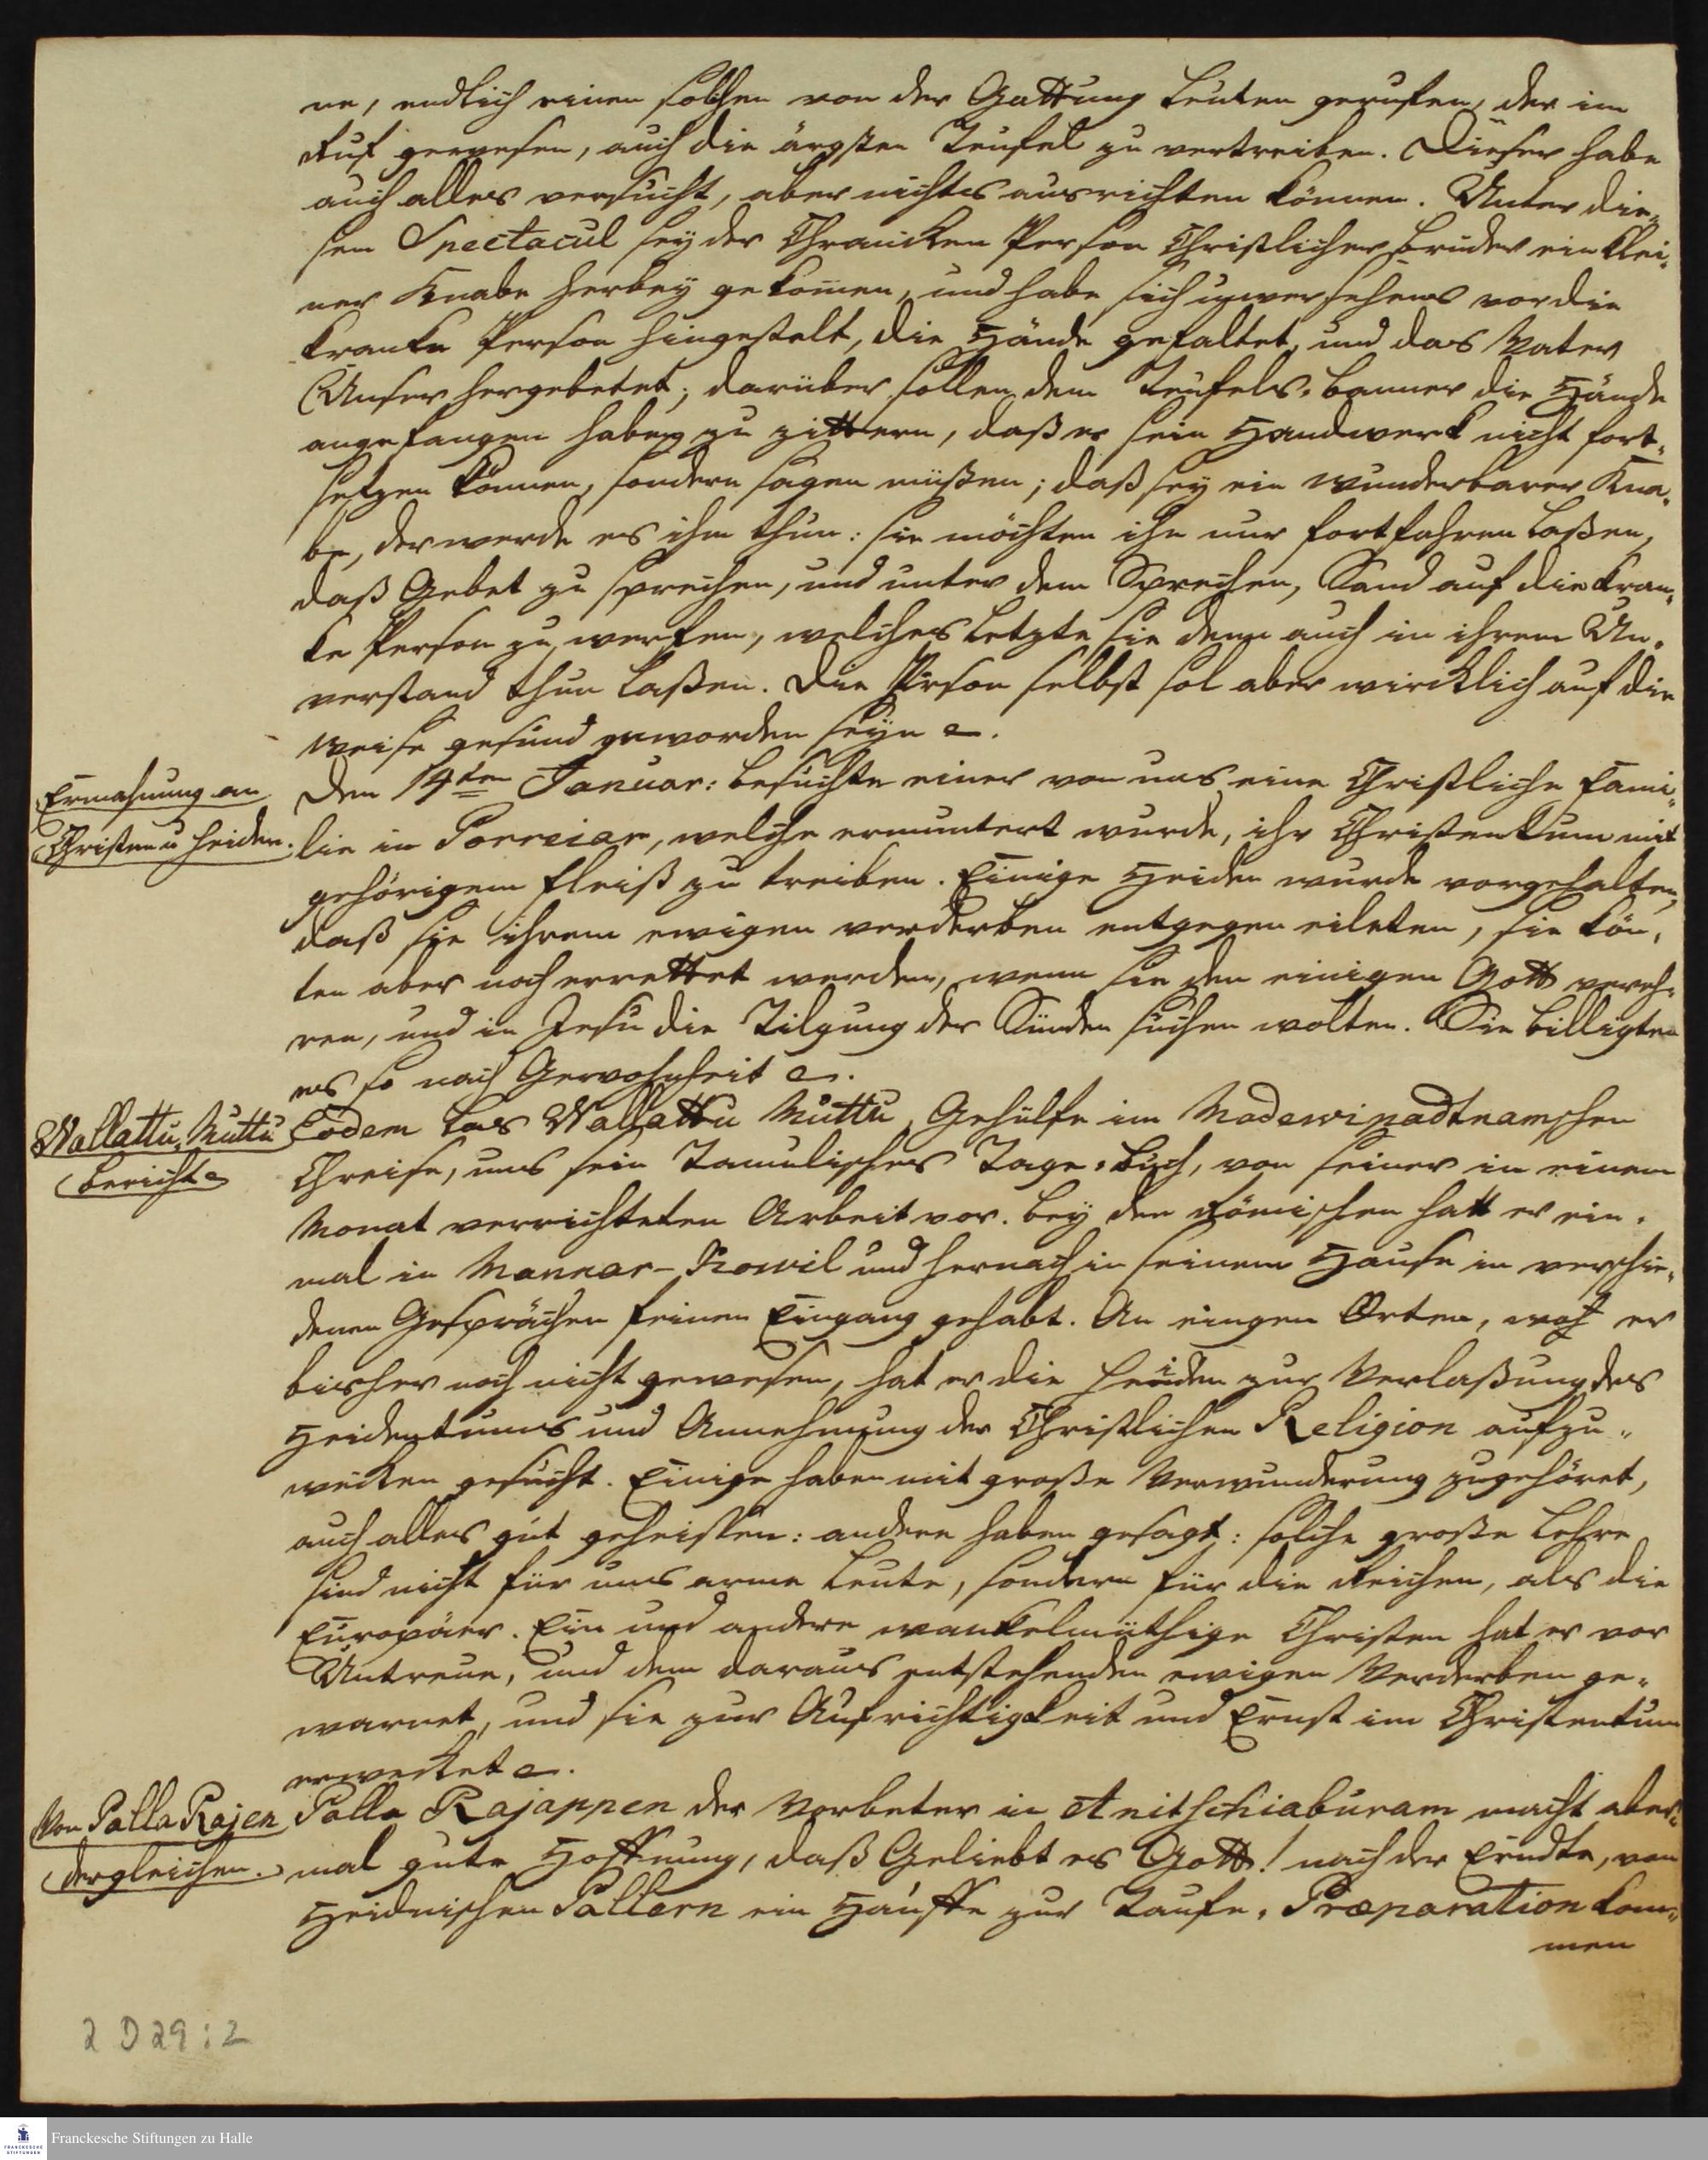 ne, endlich einen solchen von der Gattung Leuten gerufen, der im
Ruf gewesen, auch die ärgsten Teufel zu vertreiben. Dieser habe
auch alles versucht, aber nichts ausrichten können. Unter die=
sen Spectacul sey der Chrancken Person Christlicher Bruder ein klei=
ner Knabe herbey gekom̅en, und habe sich unversehens vor die
krancke Person hingestelt, die Hände gefaltet, und das Vater
Unser hergebetet; darüber sollen dem Teufels=banner die Hände
angefangen haben zu zittern, daß er sein Handwerck nicht fort=
setzen können, sondern sagen müßen; daß sey ein wunderbarer Kna=
be, der werde es ihm thun: sie möchten ihn nur fortfahren laßen,
daß Gebet zu sprechen, und unter dem Sprechen, Sand auf die kran=
ke Person zu werfen, welches letzte sie denn auch in ihrem Un=
verstand thun laßen. Die Person selbst sol aber wircklich auf die
Weise gesund geworden seyn ec.
Ermahnung an
Christen u Heiden.
Den 14ten Januar: besuchte einer von uns eine Christliche Fami=
lie in Porreiar, welche ermuntert wurde, ihr Christentum mit
gehörigem Fleiß zu treiben. Einige Heiden wurde vorgehalten,
daß sie ihrem ewigen verderben entgegen eileten, sie kön=
ten aber noch errettet werden, wenn sie den einigen Gott vereh=
ren, und in Jesu die Tilgung der Sünden suchen wolten. Sie billigten
es so nach Gewohnheit ec.
Wallattu Muttu
bericht ec
Eodem las Wallattu Muttu, Gehülfe im Madewipadtnamschen
Chreise, uns sein Tamulisches Tage=buch, von seiner in einem
Monat verrichteten Arbeit vor. bey den Römischen hatt er ein=
mal in Mannar-Kowil und hernach in seinem Hause in verschie=
denen Gesprächen feinen Eingang gehabt. An eingen Orten, wo er
bisher noch nicht gewesen, hat er die Heiden zur Verlaßung des
Heidentums und Annehmung der Christlichen Religion aufzu=
wecken gesucht. Einige haben mit große Verwunderung zugehöret,
auch alles gut geheissen: andere haben gesagt: solche große Lehre
sind nicht für uns arme Leute, sondern für die Reichen, als die
Europäer. Ein und andere wankelmüthige Christen hat er vor
Untreue, und dem daraus entstehenden ewigen Verderben ge=
warnet, und sie zur Aufrichtigkeit und Ernst im Christentum
erwecket ec.
Von Palla Rajen
dergleichen.
Palla Rajappen der Vorbeter in Anitschiaburam macht aber=
mal gute Hoffnung, daß Geliebt es Gott! nach der Erndte, von
Heidnischen Pallern ein Häuffe zur Taufe=Præparation kom=
men
2 D 29 : 2
FRANCKESCHE
STIFTUNGEN
Franckesche Stiftungen zu Halle